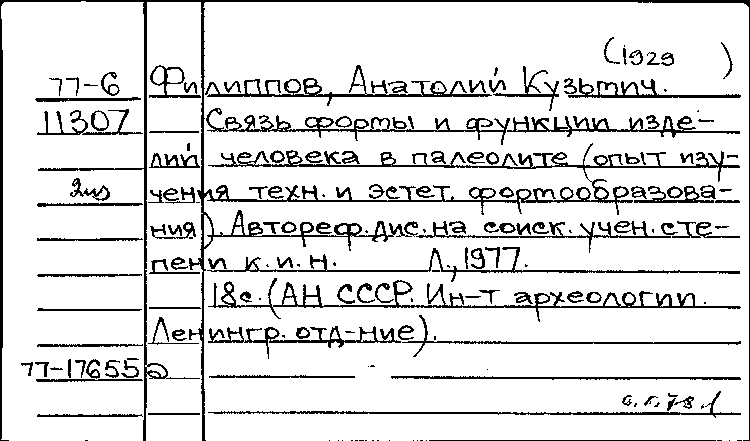 (1929 )
77-6 Филиппов, Анатолий Кузьмич.
11307 Связь формы и функции изде-
лий человека в палеолите (опыт изу-
2из чения техн. и эстет. формообразова-
ния). Автореф. дис. на соиск. учен. сте-
пени к.и.н. Л., 1977.
18с. (АН СССР. Ин-т археологии.
Ленингр. отд-ние).
77-17655